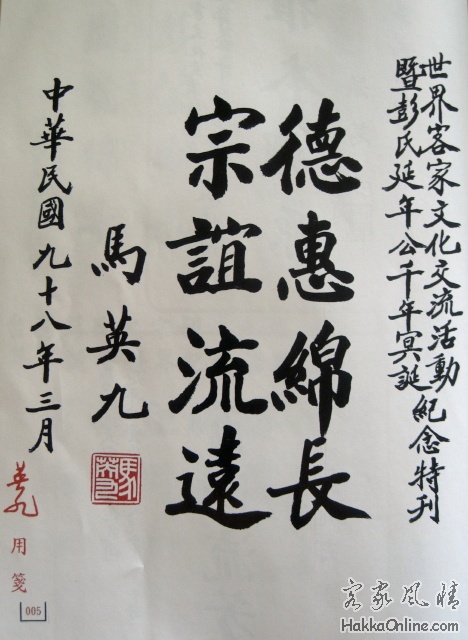 世界客家文化交流活動紀念特刊
暨彭氏延年公千年冥誕
德惠綿長
宗誼流遠
馬英九
馬英九
中華民國九十八年三月
英九
用箋
005
客家风情
HakkaOnline.com